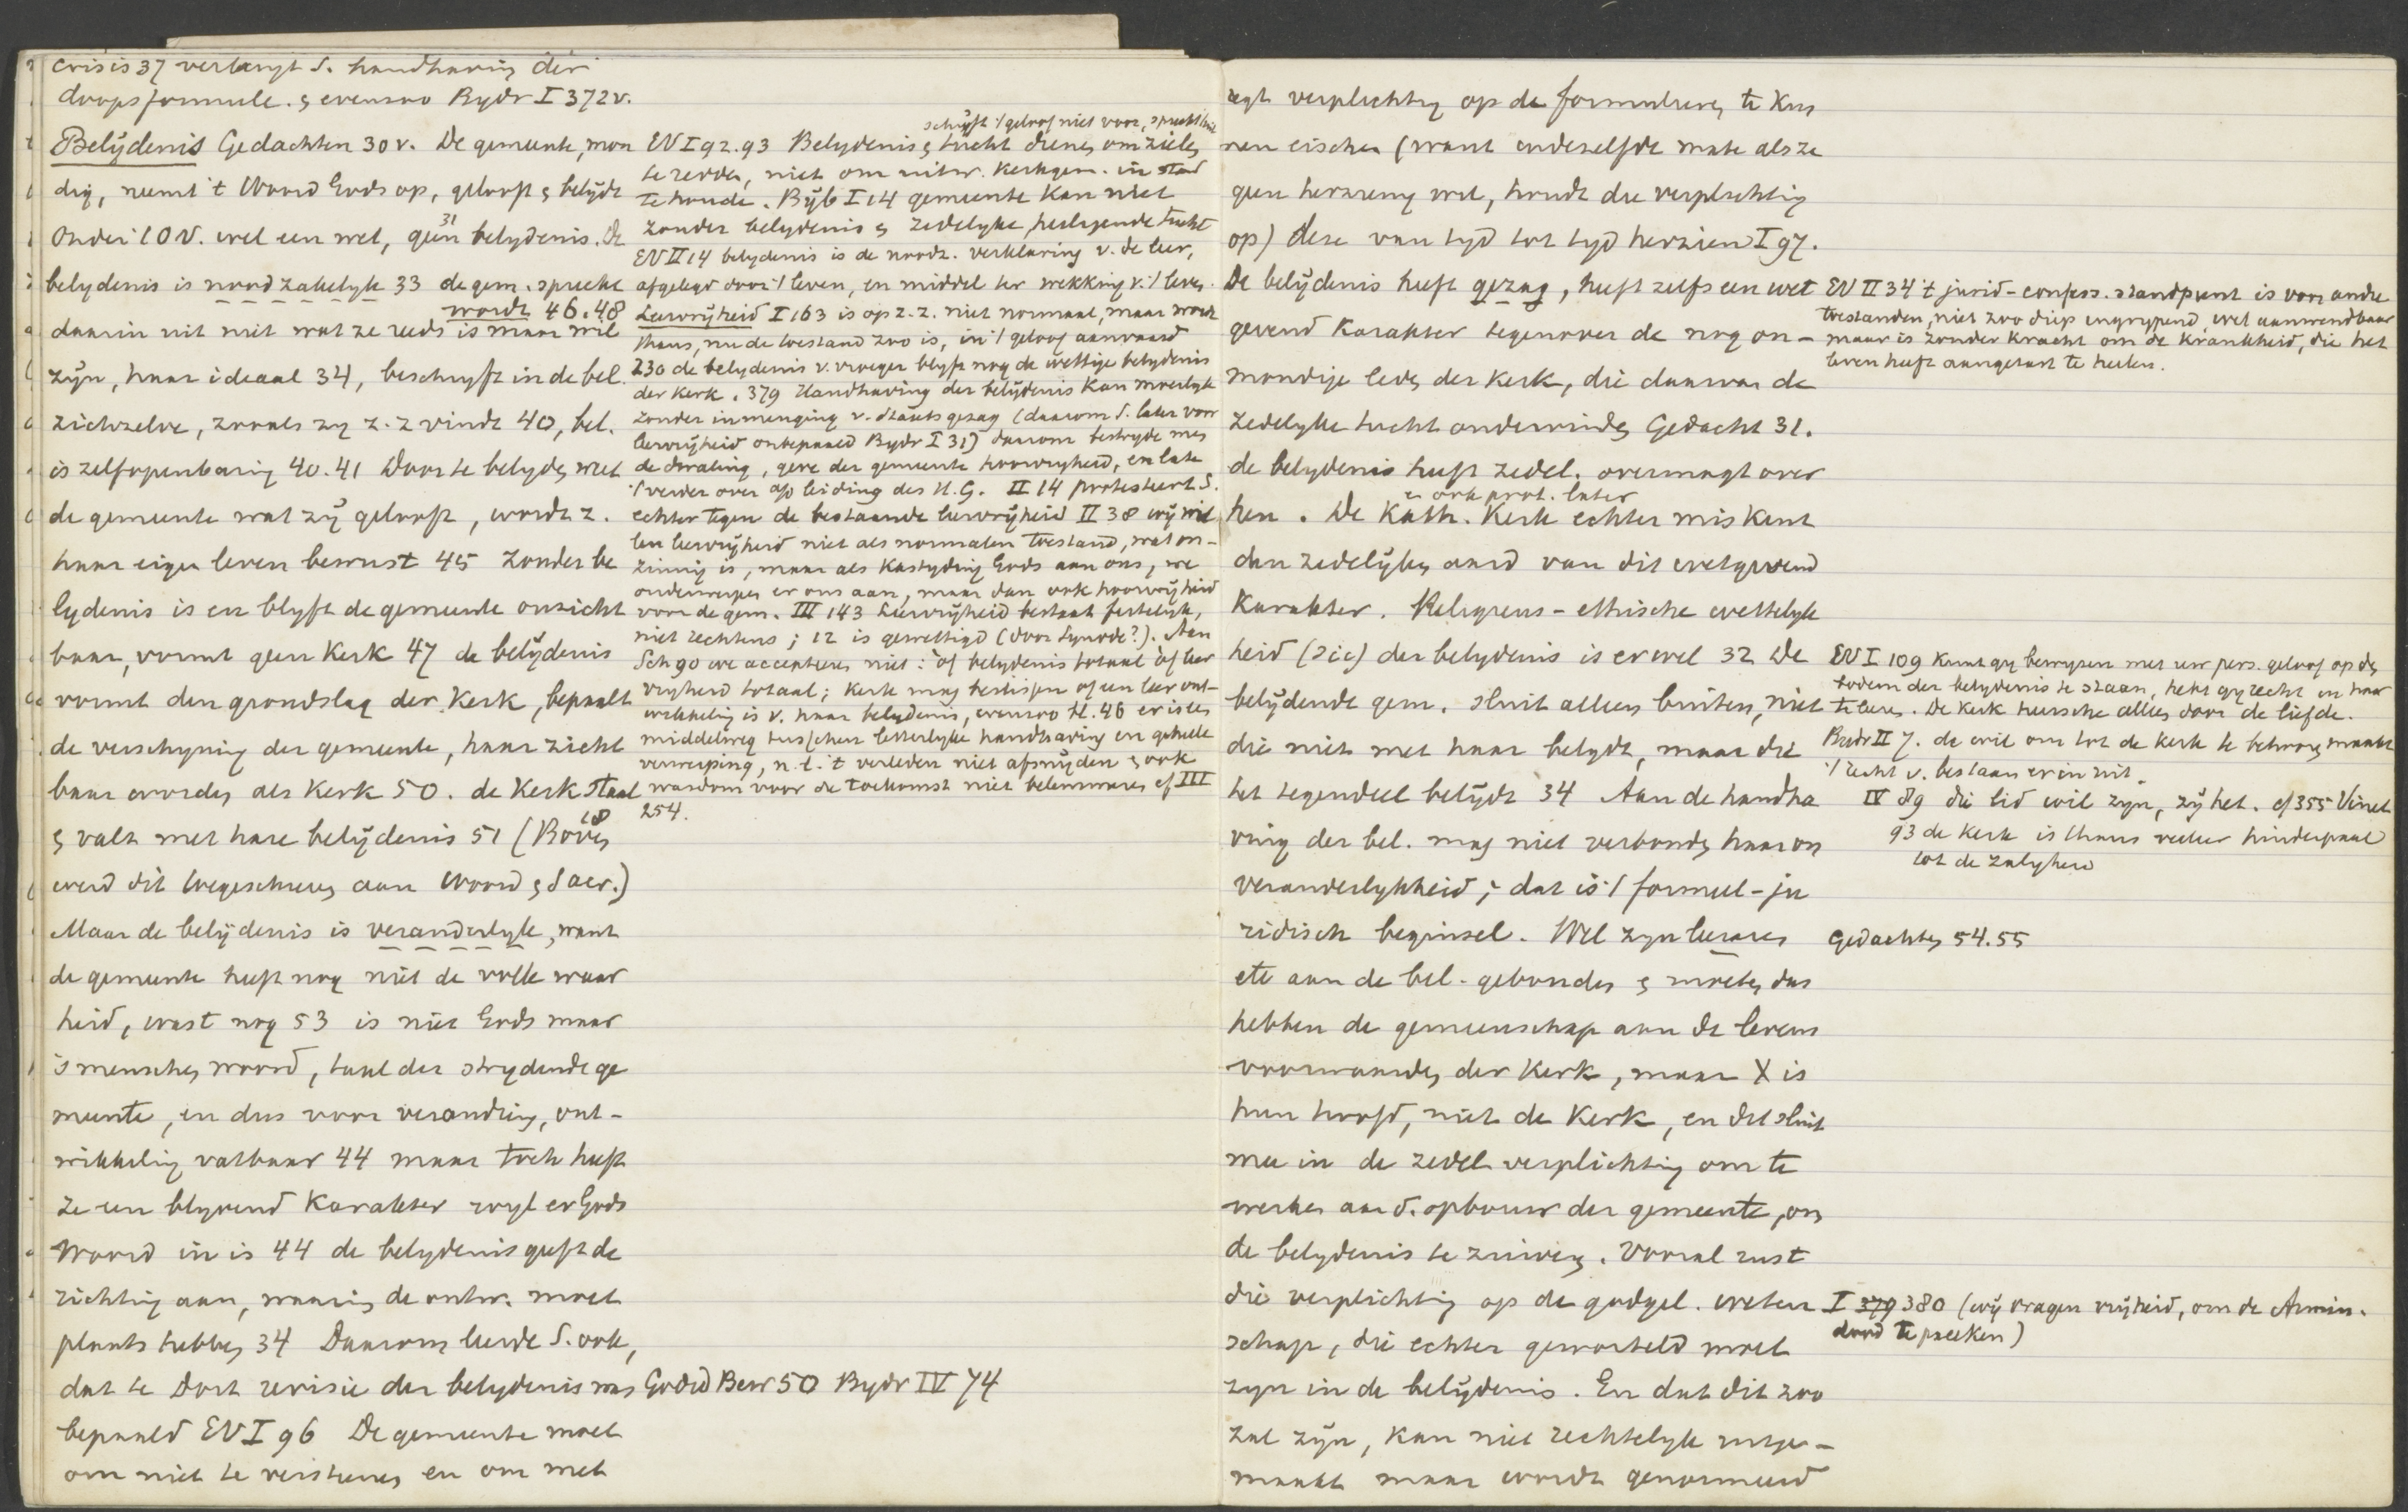 crisis 37 verlangt S. handhaving der
doopsformule. & evenzoo Bydr I 372v.
Belydenis Gedachten 30v. De gemeente, mon
dig, neemt 't Woord Gods op, gelooft & belydt
Onder 't OV. wel een wet, geen belydenis. De
31
belydenis is noodzakelyk 33 de gem. spreekt
wordt 46.48
daarin uit niet wat ze reeds is maar wil
zyn, haar ideaal 34, beschryft in de bel.
zichzelve, zooals zy z. z vindt 40, bel.
is zelfopenbaring 40.41 Door te belyden wat
de gemeente wat zy gelooft, wordt z.
haar eigen leven bewust 45 Zonder be
lydenis is en blyft de gemeente onzicht
baar, vormt geen Kerk 47 de belydenis
vormt den grondslag der Kerk, bepaalt
de verschyning der gemeente, haar zicht
baar worden als Kerk 50. de Kerk staat
& valt met hare belydenis 51 (Boven
18
werd dit toegeschreven aan Woord & Sacr.)
Maar de belydenis is veranderlyk, want
de gemeente heeft nog niet de volle waar
heid, wast nog 53 is niet Gods maar
is menschen woord, taal der strydende ge
meente, en dus voor verandring, ont-
wikkeling vatbaar 44 maar toch heeft
ze een blyvend Karakter wyl er Gods
Woord in is 44 de belydenis geeft de
richting aan, waarin de ontw. moet
plaats hebben 34 Daarom leerde S. ook,
dat te Dort revisie der belydenis was
bepaald EV I 96 De gemeente moet
om niet te versteenen en om met
schryft 't geloof niet voor, spreekt 't uit
EV I 92.93 Belydenis & tucht dienen om zielen
te redden, niet om uitw. Kerkgen. in stand
te houden. Byb I 14 gemeente Kan niet
zonder belydenis & zedelyke heiligende tucht
EV II 14 belydenis is de noodz. verklaring v. de leer,
afgelegd door 't leven, en middel ter wekking v. 't leven.
Leervryheid I 163 is op z. z. niet normaal, maar wordt
thans, nu de toestand zoo is, in 't geloof aanvaard
230 de belydenis v. vroeger blyft nog de wettige belydenis
der Kerk. 379 Handhaving der belydenis Kan moeilyk
zonder inmenging v. staatsgezag (daarom S. later voor
leervryheid onbepaald Bydr I 31) daarom bestryde men
de dwaling, geve der gemeente hoorvryheid, en late
't verder over a/d leiding des H.G. II 14 protesteert S.
echter tegen de bestaande leervryheid II 38 wy wil
len leervryheid niet als normalen toestand, wat on-
zinnig is, maar als Kastyding Gods aan ons, we
onderwerpen er ons aan, maar dan ook hoorvryheid
voor de gem. III 143 Leervryheid bestaat feitelyk,
niet rechtens; 12 is gewettigd (door Synode?). Aan
Sch 90 we accepteeren niet: óf belydenis totaal óf leer
vryheid totaal; Kerk mag beslissen of een leer ont-
wikkeling is v. haar belydenis, evenzoo H. 46 er is een
middelweg tusschen letterlyke handhaving en geheele
verwerping, n.l. 't verleden niet afsnyden & ook
wasdom voor de toekomst niet belemmeren cf III
254.
Godd Bew 50 Bydr IV 74
regt verplichting op de formulieren te Kun
nen eischen (want in dezelfde mate als ze
geen herziening wil, houdt die verplichting
op) deze van tyd tot tyd herzien I 97.
De belydenis heeft gezag, heeft zelfs een wet
gevend Karakter tegenover de nog on-
mondige leden der Kerk, die daarvan de
zedelyke tucht ondervinden Gedacht 31.
de belydenis heeft zedel. overmagt over
& ook prot. later
hen. De Kath. Kerk echter miskent
den zedelyken aard van dit wetgevend
Karakter. Religieus-ethische wettelyk
heid (sic) der belydenis is er wel 32 De
belydende gem. sluit alleen buiten, niet
die niet met haar belydt, maar die
het tegendeel belydt 34 Aan de handha
ving der bel. mag niet verbonden haar on
veranderlykheid; dat is 't formeel-ju
ridisch beginsel. Wel zyn leeraren
etc aan de bel. gebonden & moeten dus
hebben de gemeenschap aan de levens
voorwaarden der Kerk, maar X is
hun hoofd, niet de Kerk, en dit sluit
mee in de zedel. verplichting om te
werken aan d. opbouw der gemeente, om
de belydenis te zuiveren. Vooral rust
die verplichting op de godgel. weten
schap, die echter geworteld moet
zyn in de belydenis. En dat dit zoo
zal zyn, Kan niet rechtelyk uitge-
maakt maar wordt genormeerd
EV II 34 't jurid-confess. standpunt is voor andre
toestanden, niet zoo diep ingrypend, wel aanwendbaar
maar is zonder Kracht om de Krankheid, die het
leven heeft aangetast te heelen.
EV I 109 Kunt gy bewyzen met uw pers. geloof op den
bodem der belydenis te staan, hebt gy recht in haar
te leeren. De Kerk heersche alleen door de liefde.
Bydr II 7. de wil om tot de Kerk te behooren maakt
't recht v. bestaan er in uit.
IV 89 die lid wil zyn, zy het. cf 355 Vinet
93 de Kerk is thans veeleer hinderpaal
tot de zaligheid
Gedachten 54.55
I 379 380 (wy vragen vryheid, om de Armin.
dood te preeken)